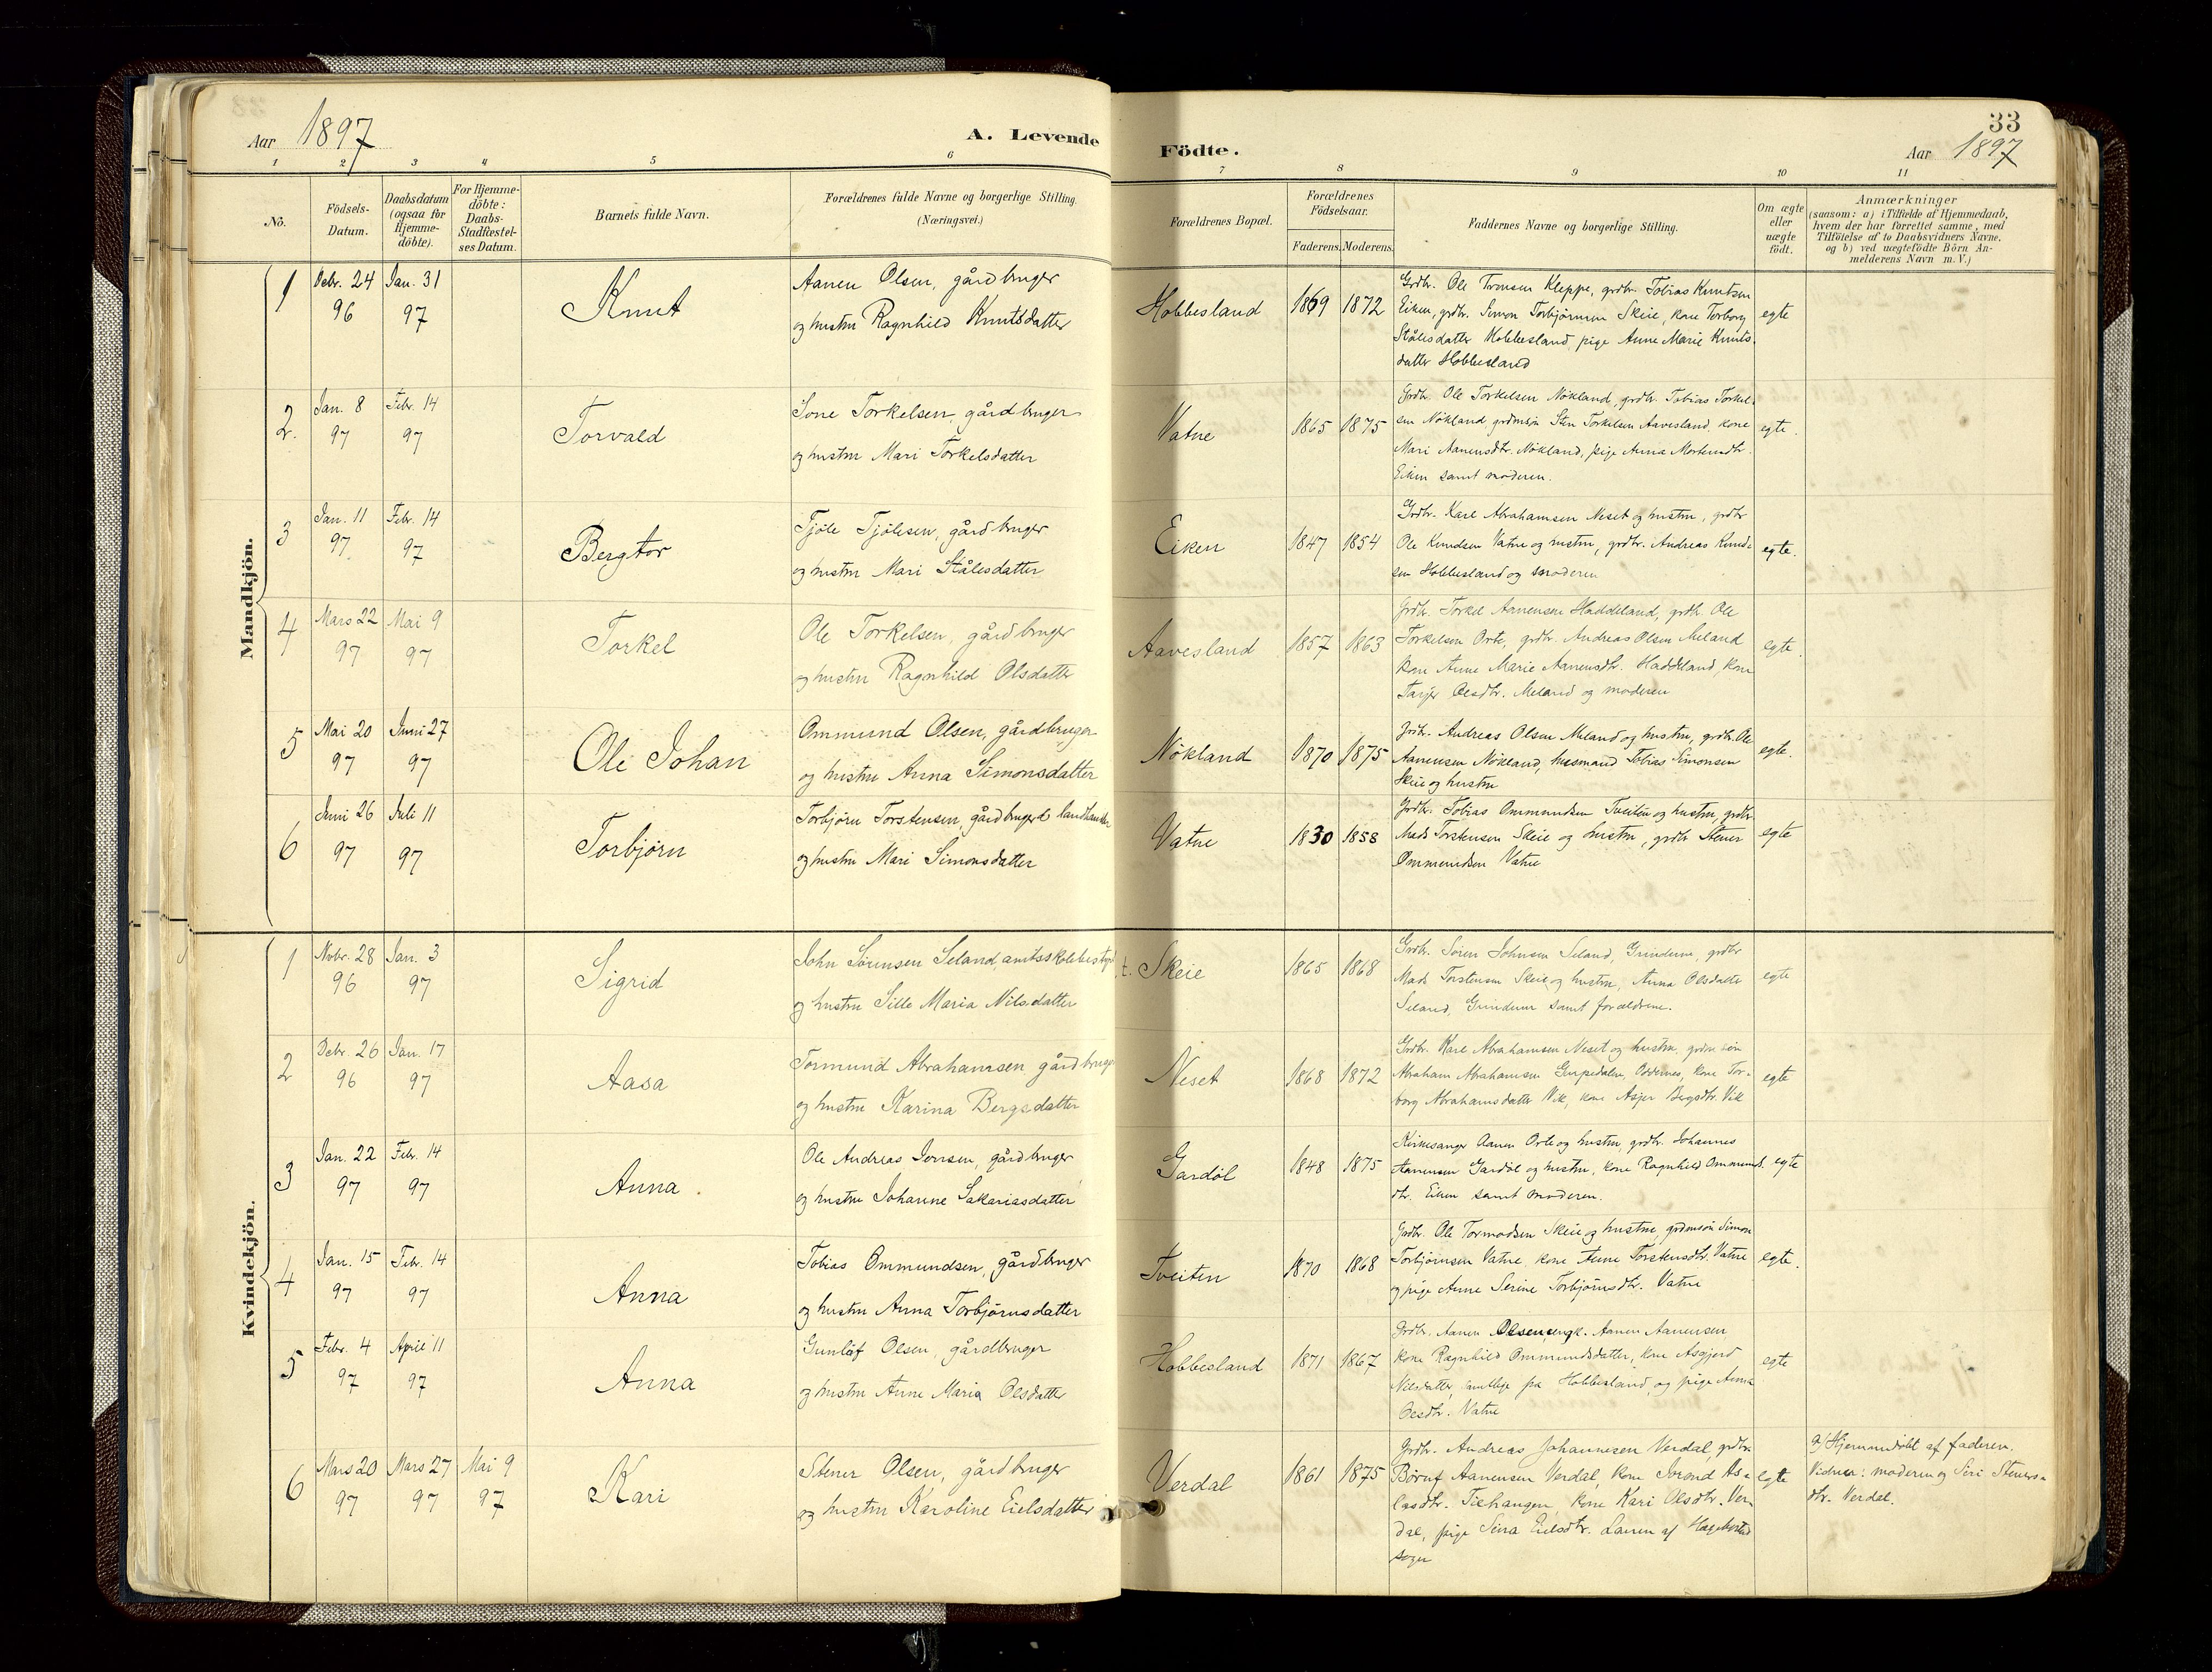 33
Aar 1897
A. Levende Födte.
Aar 1897
1 2 3 4 5 6 7 8 9 10 11
No.
Födsels-
Datum.
Daabsdatum
(ogsaa for
Hjemme-
döbte).
For Hjemme-
döbte:
Daabs-
Stadfestel-
ses Datum.
Barnets fulde Navn.
Forældrenes fulde Navne og borgerlige Stilling.
(Næringsvei.)
Forældrenes Bopæl.
Forældrenes
Födselsaar.
Faderens. Moderens.
Faddernes Navne og borgerlige Stilling.
Om ægte
eller
uægte
födt.
Anmærkninger
(saasom: a) i Tilfælde af Hjemmedaab,
hvem der har forrettet samme, med
Tilföielse af to Daabsvidners Navne,
og b) ved uægtefödte Börn An-
melderens Navn m. V.)
Mandkjön.
1
Debr. 24
96
Jan. 31
97
Knut
Aanen Olsen, gårdbruger
og hustru Ragnhild Knutsdatter
Hobbesland
1869 1872
Grdbr. Ole Tronsen Kleppe, grdbr. Tobias Knutsen
Eiken, grdbr. Simon Torbjörnsen Skeie, kone Torborg
Stålesdatter Hobbesland, pige Anne Marie Knuts-
datter Hobbesland
egte
2.
Jan. 8
97
Febr. 14
97
Torvald
Tore Torkelsen, gårdbruger
og hustru Mari Torkelsdatter
Vatne
1865 1875
Grdbr. Ole Torkelsen Nökland, grdbr. Tobias Torkel-
sen Nökland, grdmsön Sten Torkelsen Aavesland, kone
Mari Aanensdtr. Nökland, pige Anna Mortensdtr.
Eiken samt moderen.
egte.
3
Jan. 11
97
Febr. 14
97
Bergtor
Tjöle Tjölesen, gårdbruger
og hustru Mari Stålesdatter
Eiken
1847 1854
Grdbr. Karl Abrahamsen Neset og hustru, grdbr
Ole Knudsen Vatne og hustru, grdbr. Andreas Knud-
sen Hobbesland og moderen
egte.
4
Mars 22
97
Mai 9
97
Torkel
Ole Torkelsen, gårdbruger
og hustru Ragnhild Olsdatter
Aavesland
1857 1863
Grdbr. Torkel Aanensen Haddeland, grdb. Ole
Torkelsen Orte, grdbr. Andreas Olsen Meland
kone Anne Marie Aanensdtr. Haddeland, kone
Tarjer Olsdtr. Meland og moderen
egte.
5
Mai 20
97
Juni 27
97
Ole Johan
Ommund Olsen, gårdbruger
og hustru Anna Simonsdatter
Nökland
1870 1875
Grdbr. Andreas Olsen Meland og hustru, grdbr. Ole
Aanensen Nökland, husmand Tobias Simonsen
Skeie og hustru
egte.
6
Juni 26
97
Juli 11
97
Torbjörn
Torbjörn Torstensen, gårdbruger & landhandler
og hustru Mari Simonsdatter
Vatne
1830 1858
Grdbr. Tobias Ommundsen Tveiten og hustru, grdbr.
Mads Torstensen Skeie og hustru, grdbr Stener
Ommundsen Vatne
egte
Kvindekjön.
1
Nvbr. 28
96
Jan. 3
97
Sigrid
John Sörensen Seland, amtsskolebestyr.
og hustru Sille Maria Nilsdatter
Skeie
1865 1868
Grdbr. Sören Johnsen Seland, Grindum, grdbr
Mads Torstensen Skeie og hustru, Anna Olsdatter
Seland, Grindum samt forældrene.
egte
2
Debr. 26
96
Jan. 17
97
Aasa
Tormund Abrahamsen, gårdbruger
og hustru Karina Bergsdatter
Neset
1868 1872
Grdbr. Karl Abrahamsen Neset og hustru, grdm. sön
Abraham Abrahamsen Gurpedalen, Oddernes, kone Tor-
borg Abrahamsdatter Vik, kone Asjer Bergsdtr. Vik
egte
3
Jan. 22
97
Febr. 14
97
Anna.
Ole Andreas Jonsen, gårdbruger
og hustru Johanne Sakariasdatter
Gardöl
1848 1875
Kirkesanger Aanen Orte og hustru, grdbr. Johannes
Aanensen Gardöl og hustru, kone Ragnhild Ommunds.
dtr. Eiken samt moderen.
egte
4
Jan. 15
97
Febr. 14
97
Anna
Tobias Ommundsen, gårdbruger
og hustru Anna Torbjörnsdatter
Tveiten
1870 1868
Grdbr. Ole Tormodsen Skeie og hustru, grdmsön Simon
Torbjörnsen Vatne, kone Anne Torstensdtr. Vatne
og pige Anne Serine Torbjörnsdtr. Vatne
egte.
5
Febr. 4
97
April 11
97
Anna
Gunlöf Olsen, gårdbruger
og hustru Anne Maria Olsdatter
Hobbesland
1871 1867
Grdbr. Aanen Olsen, ungk. Aanen Aanensen,
kone Ragnhild Ommundsdatter, kone Asgjerd
Nilsdatter, samtlige på Hobbesland, og pige Anna
Olsdtr. Vatne
egte
6
Mars 20
97
Mars 27
97
Mai 9
97
Kari
Stener Olsen, gårdbruger
og hustru Karoline Eielsdatter
Verdal
1861 1875
Grdbr. Andreas Johannesen Verdal, grdbr.
Börüf Aanensen Verdal, kone Jorand As-
lasdtr. Tjehangen, kone Kari Olsdtr. Ver-
dal, pige Sina Eielsdtr. Lauen af Hægebostad
sogn
egte
a/ Hjemmedöbt af faderen.
Vidner: moderen og Siri Steners-
dtr. Verdal.